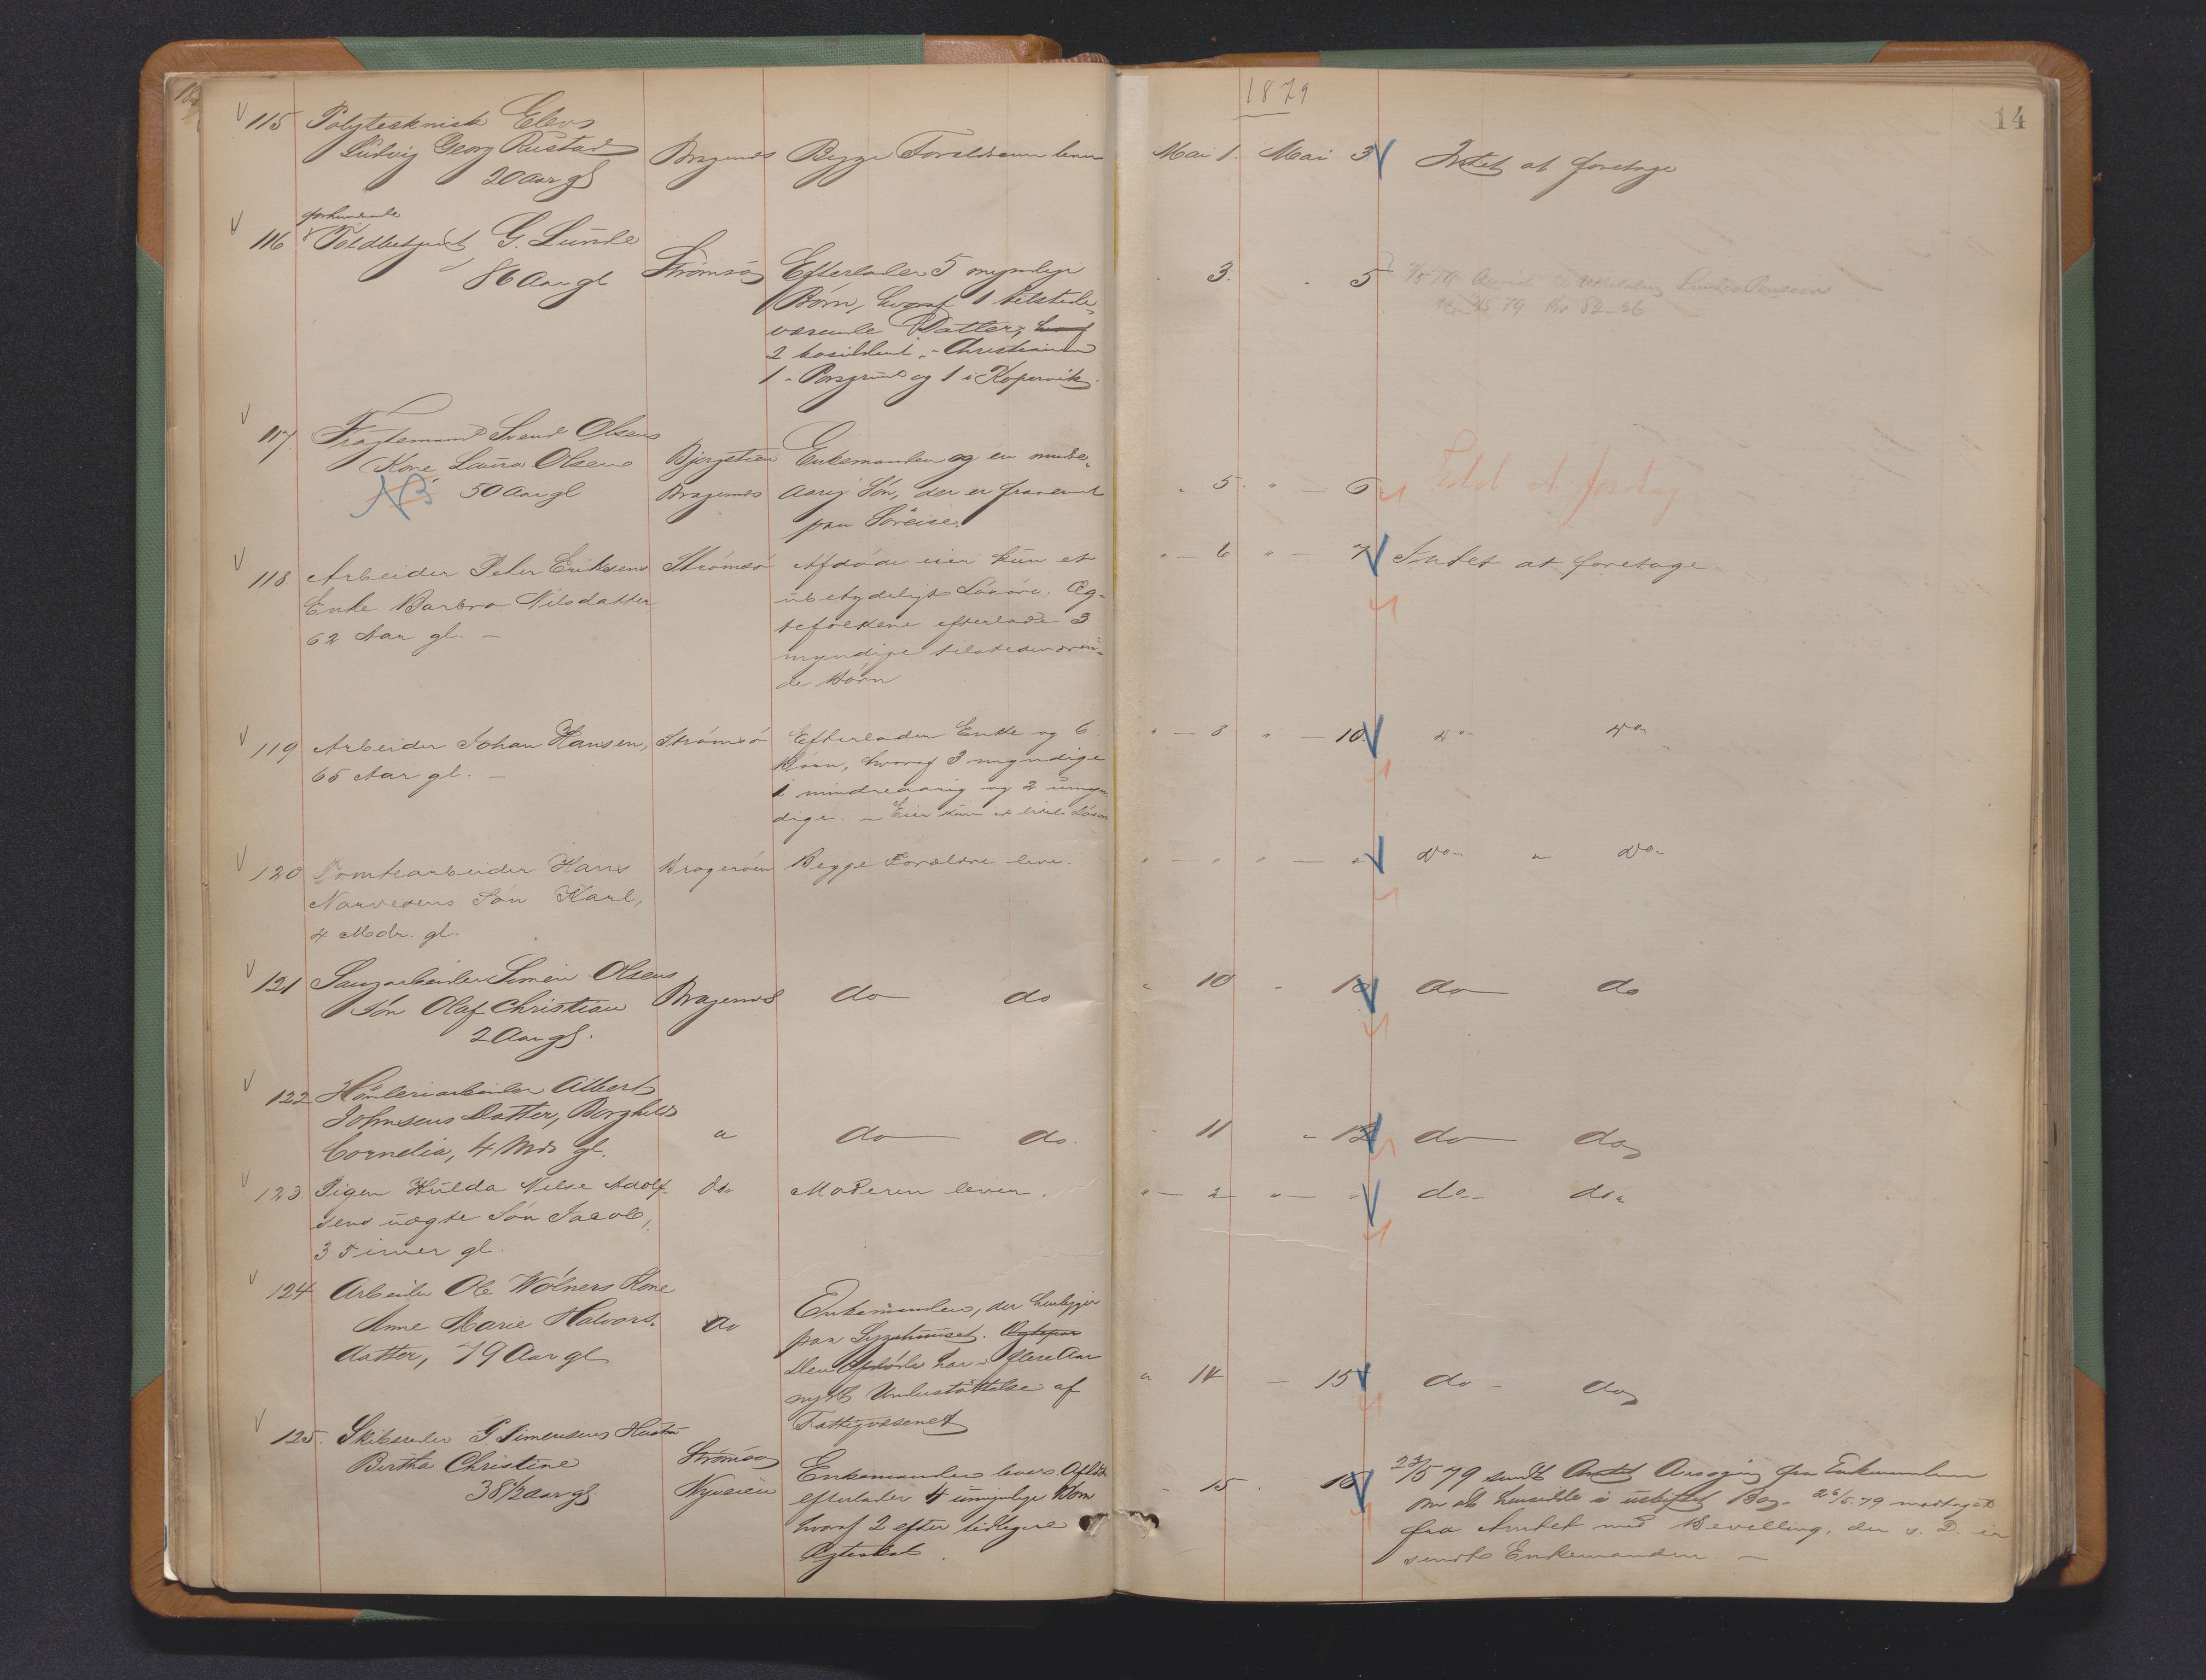 1879
14
115 Polyteknisk Elev
Ludvig Georg Rustad Bragernes Begge Forældrene lever Mai 1. Mai 3 Intet at foretage
20 Aar gl
forhenværende
116 Toldbetjent G. Lunde
86 Aar gl Strømsø Efterlader 5 myndige 3. 5
Børn, hvoraf 1 tilstede-
værende Datter,
2 bosiddende i Christiania
1 i Porsgrund og 1 i Kopervik.
117 Fragtemand Svend Olsens
Kone Laura Olsen Bjergstien Enkemanden og en mindre-
NB 50 Aar gl Bragernes aarig Søn, der er fraværende " 5 " 6 Intet at foretage
paa Søreise.
118 Arbeider Peter Eriksens Strømsø Afdøde eier kun et " 6 " 7 Intet at foretage
Enke Barbro Nilsdatter ubetydeligt Løsøre. Æg-
62 Aar gl. tefolkene efterlade 3
myndige tilstedeværen-
de Børn
119 Arbeider Johan Hansen, Strømsø Efterlader Enke og 6 " 8 " 10 do do
65 Aar gl. Børn, hvoraf 3 myndige
1 mindreaarig og 2 umyn-
dige. Eier kun et lidet Løsøre
120 Tomtearbeider Hans Bragerøen Begge Forældre lever. " " " " do " do
Narvesens Søn Karl,
4 Mdr. gl.
121 Saugarbeider Simen Olsens
Søn Olaf Christian Bragernes do do " 10 do do
2 Aar gl.
122 Høvleriarbeider Albert
Johnsens Datter, Borghild
Cornelia, 4 Mdr gl. " do do. 11 12 do do
123 Pigen Hulda Nilse Adolf- do Moderen lever. do do
sens uægte Søn Jacob,
3 Timer gl.
124 Arbeider Ole Wølners Kone
Anne Marie Halvors- do Enkemanden, der henligger
datter, 79 Aar gl paa Sygehuset.
Den Afdøde har i flere Aar
nydt Understøttelse af " 14 15 do do
Fattigvæsenet
125. Skibsreder P. Simensens Hustru
Bertha Christine Strømsø Enkemanden lever. Afdøde 23/5 79 sendt Amtet Ansøgning fra Enkemanden
38 1/2 aar gl. Nyveien efterlader 4 umyndige Børn 15 16 om at hensidde i uskiftet Bo. 26/5 79 modtaget
hvoraf 2 efter tidligere fra Amtet med Bevilling, der s. D. er
Ægteskab. sendt Enkemanden.